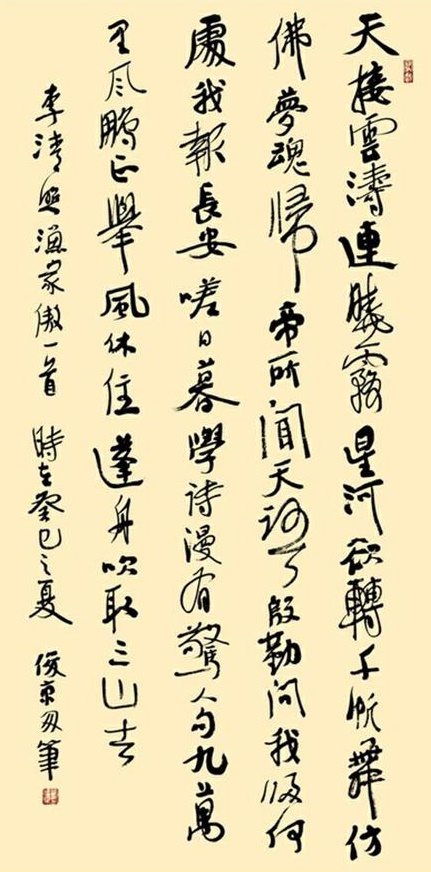 天接雲濤連曉霧星河欲轉千帆舞仿
佛夢魂歸帝所聞天殷勤問我歸何
處我報長安嗟日暮學詩漫有驚人句九萬
里风鵬正舉風休住蓬舟吹取三山去
李清照漁家傲一首 時在癸巳之夏 俊筆